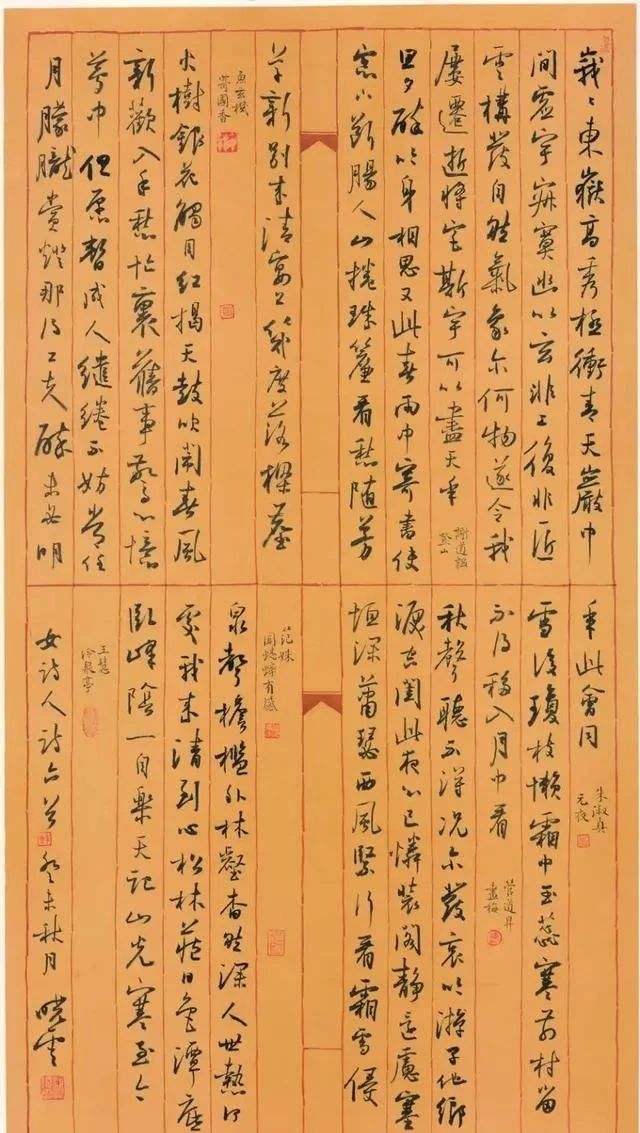 峩〻東嶽高秀極衝青天巖中
間虛宇寂寞幽以玄非工復非匠
雲構發自然氣象爾何物遂令我
屢遷逝將宅斯宇可以盡天年
謝道韞
登山
旦夕醉吟身相思又此春雨中寄書使
窗下斷腸人山捲珠簾看愁隨芳
草新別來清宴上幾度落樑塵
魚玄機
寄國香
火樹銀花觸目紅揭天鼓吹鬧春風
新歡入手愁忙裏舊事驚心憶
夢中但願暫成人繾綣不妨常任
月朦朧賞燈那得工夫醉未必明
年此會同
朱淑真
元夜
雪後瓊枝懶霜中玉蕊寒前村留
不得移入月中看
管道昇
畫梅
秋聲聽不得況爾發哀吟游子他鄉
淚空閨此夜心已憐裝閣靜還慮塞
垣深蕭瑟西風緊行看霜雪侵
范姝
聞蟋蟀有感
泉聲檐檻外林壑杳然深人世熱何
處我來清到心松林蔽日色潭底
臥峰陰一自樂天記山光寒至今
王慧
冷泉亭
女詩人詩六首 癸未秋月 曉雲